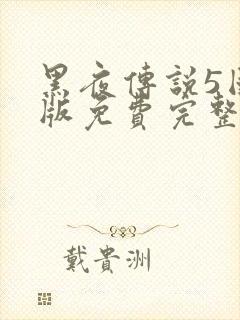 黑夜傳說5
版免費完整
戴貴洲